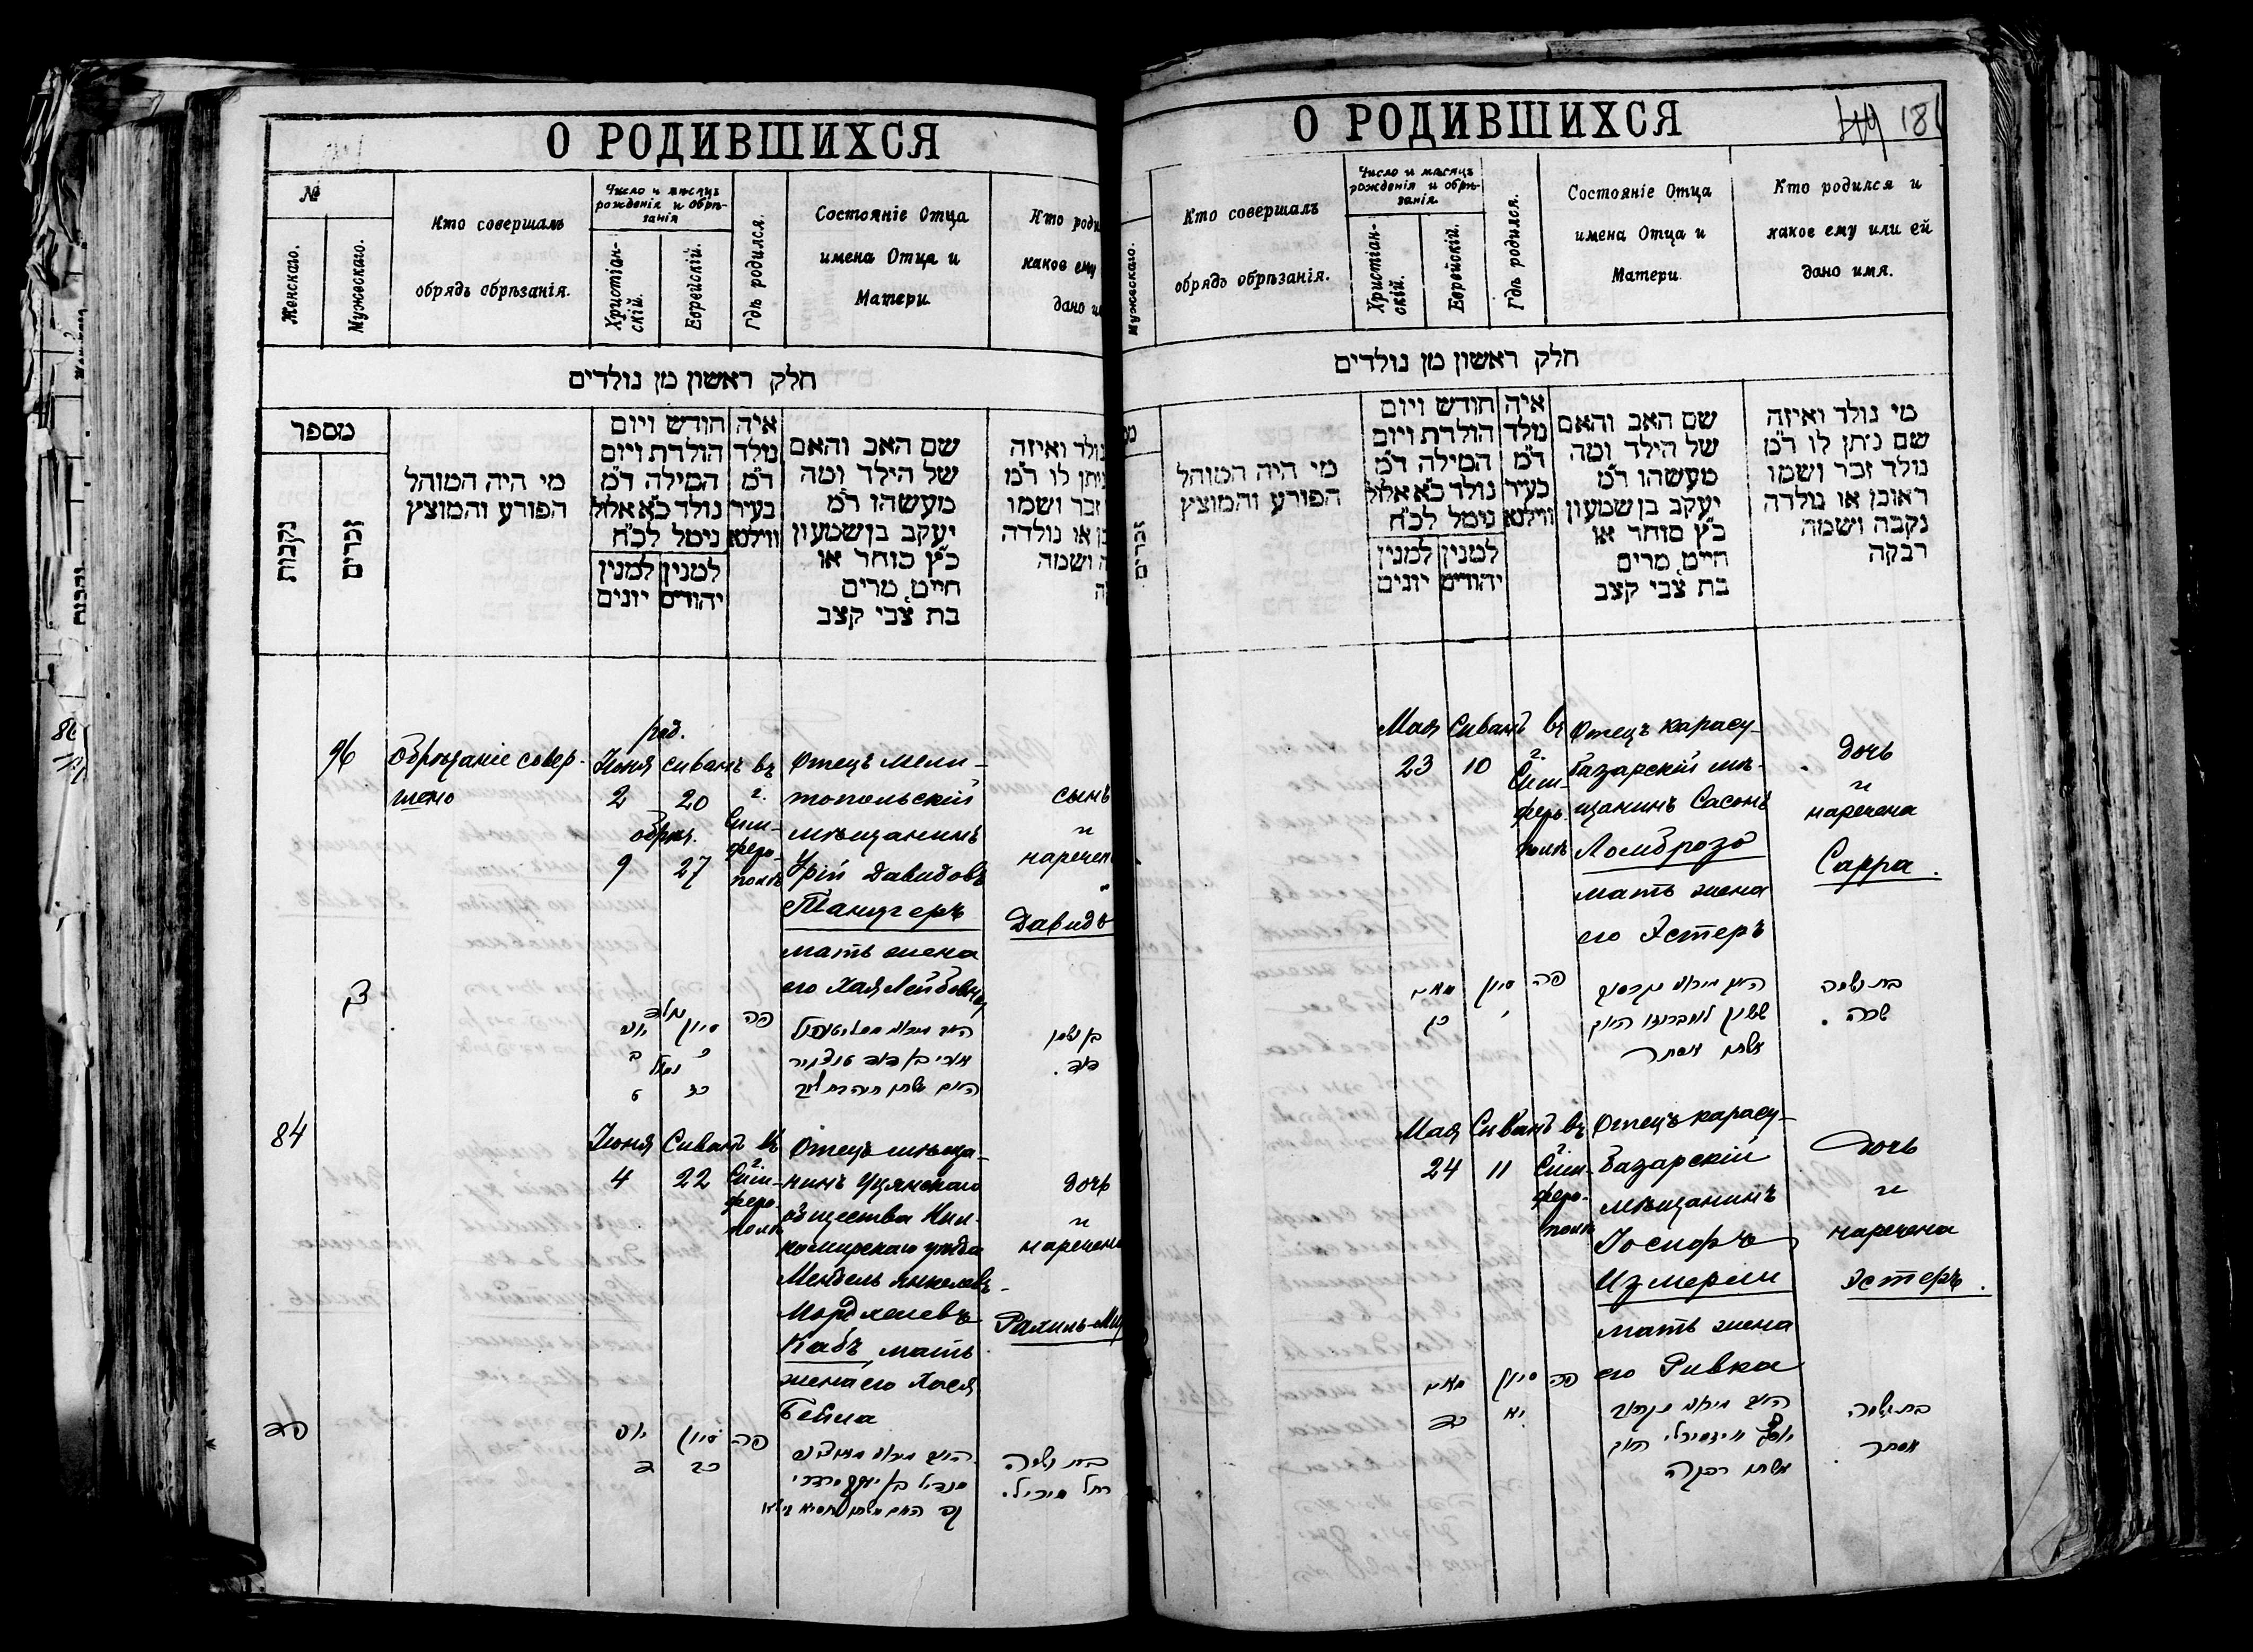 О РОДИВШИХСЯ
№
Женскаго.
Мужескаго.
Кто совершалъ
обрядъ обрѣзанія.
Число и мѣсяцъ
рожденія и обрѣ-
занія
Христіан-
скій.
Еврейскій.
Гдѣ родился.
Состояніе Отца
имена Отца и
Матери
Кто роди
какое ему
дано и
חלק ראשון מן נולדים
מספר
נקבות
זכרים
מי היה המוהל
הפורע והמוצץ
חודש ויום
הולדת ויום
המילה ד״מ
נולד כ״א אלול
נימל לכ״ח
למנין
יהודים
למנין
יונים
איה
נולד
ד״מ
בעיר
ווילנא
שם האב והאם
של הילד ומה
מעשהו ד״מ
יעקב בן שמעון
כ״ץ סוחר או
חייט, מרים
בת צבי קצב
נולד ואיזה
ניתן לו ד״מ
זכר ושמו
או נולדה
ושמה
96
Обрѣзаніе совер-
шено
род.
Іюня Сиванъ
2 20
обрѣз.
9 27
въ
г.
Сим-
феро-
полѣ
Отецъ мели-
топольскій
мѣщанинъ
Урій Давидовъ
Танугеръ
мать жена
его Хая Лейбовна
сынъ
и
наречен
Давидъ
סיון
פה
בן ושמו
דוד.
84
Іюня Сиванъ
4 22
въ
г.
Сим-
феро-
полѣ
Отецъ мѣща-
нинъ Уцянскаго
общества Вил-
комирскаго уѣзда
Мендель Янкелевъ-
Мордхелевъ
Кабъ, мать
жена его Хася
Бейла
дочь
и
наречена
Рахиль-Ми
פד
סיון
כב
פה
בת ושמה
רחל
О РОДИВШИХСЯ
181
Мужескаго.
Кто совершалъ
обрядъ обрѣзанія.
Число и мѣсяцъ
рожденія и обрѣ-
занія.
Христіан-
скій.
Еврейскій.
Гдѣ родился.
Состояніе Отца
имена Отца и
Матери
Кто родился и
какое ему или ей
дано имя.
חלק ראשון מן נולדים
זכרים
מי היה המוהל
הפורע והמוצץ
חודש ויום
הולדת ויום
המילה ד״מ
נולד כ״א אלול
נימל לכ״ח
למנין
יהודים
למנין
יונים
איה
נולד
ד״מ
בעיר
ווילנא
שם האב והאם
של הילד ומה
מעשהו ד״מ
יעקב בן שמעון
כ״ץ סוחר או
חייט, מרים
בת צבי קצב
מי נולד ואיזה
שם ניתן לו ד״מ
נולד זכר ושמו
ראובן או נולדה
נקבה ושמה
רבקה
Мая Сиванъ
23 10
въ
г.
Сим-
феро-
полѣ
Отецъ карасу-
базарскій мѣ-
щанинъ Сасонъ
Ломброзо
мать жена
его Эстеръ
дочь
и
наречена
Сарра.
סיון
פה
ששון לומברוזו
אשתו אסתר
בת ושמה
שרה.
Мая Сиванъ
24 11
въ
г.
Сим-
феро-
полѣ
Отецъ карасу-
базарскій
мѣщанинъ
Іосифъ
Измерли
мать жена
его Ривка
дочь
и
наречена
Эстеръ.
סיון
יא
פה
אשתו רבקה
בת ושמה
אסתר.